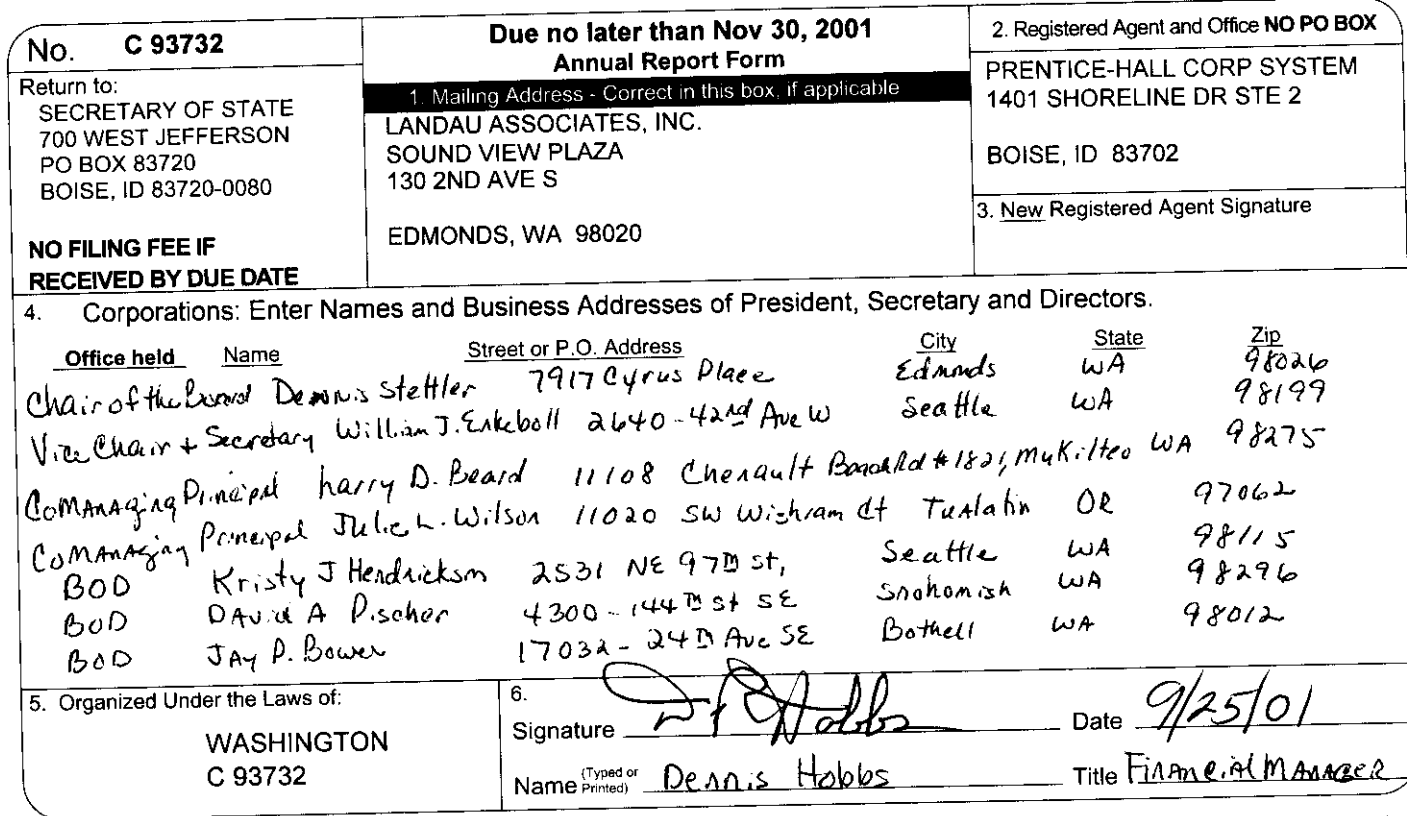 No. C 93732
Return to:
SECRETARY OF STATE
700 WEST JEFFERSON
PO BOX 83720
BOISE, ID 83720-0080
NO FILING FEE IF
RECEIVED BY DUE DATE
Due no later than Nov 30, 2001
Annual Report Form
1. Mailing Address - Correct in this box, if applicable
LANDAU ASSOCIATES, INC.
SOUND VIEW PLAZA
130 2ND AVE S
EDMONDS, WA 98020
2. Registered Agent and Office NO PO BOX
PRENTICE-HALL CORP SYSTEM
1401 SHORELINE DR STE 2
BOISE, ID 83702
3. New Registered Agent Signature
4. Corporations: Enter Names and Business Addresses of President, Secretary and Directors.
Office held Name Street or P.O. Address City State Zip
Chair of the Board Dennis Stettler 7917 Cyrus Place Edmonds WA 98026
Vice Chair + Secretary William J. Enkeboll 2640-42nd Ave W Seattle WA 98199
CoManaging Principal Larry D. Beard 11108 Chenault Beach Rd #1821, Mukilteo WA 98275
CoManaging Principal Julie L. Wilson 11020 SW Wishram Ct Tualatin OR 97062
BOD Kristy J Hendrickson 2531 NE 97th St, Seattle WA 98115
BOD David A Pischer 4300-144th St SE Snohomish WA 98296
BOD Jay P. Bower 17032-24th Ave SE Bothell WA 98012
5. Organized Under the Laws of:
WASHINGTON
C 93732
6.
Signature D Hobbs Date 9/25/01
Name (Typed or Printed) Dennis Hobbs Title Financial Manager